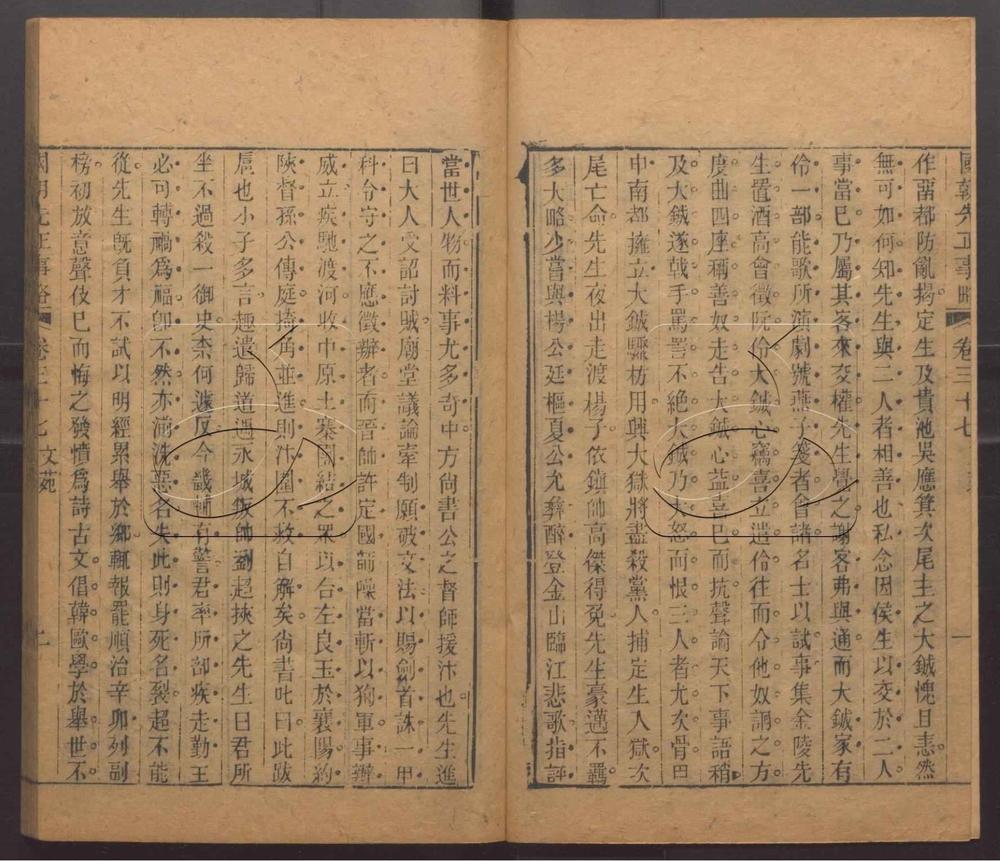 國朝先正事略 卷三十七 一
作畱都防亂揭定生及貴池吳應箕次尾主之大鋮愧且恚然
無可如何知先生與二人者相善也私念因侯生以交於二人
事當已乃屬其客來交權先生覺之謝客弗與通而大鋮家有
伶一部能歌所演劇號燕子箋者會諸名士以試事集金陵先
生置酒高會徵阮伶大鋮心竊喜立遣伶往而令他奴詗之方
度曲四座稱善奴走告大鋮心益喜已而抗聲論天下事語稍
及大鋮遂戟手罵詈不絕大鋮乃大怒而恨三人者尤次骨巳
申南都擁立大鋮驟枋用興大獄將盡殺黨人捕定生人獄次
尾亡命先生夜出走渡楊子依鎮帥高傑得免先生豪邁不羈
多大略少嘗與楊公廷樞夏公允彝醉登金山臨江悲歌指評
當世人物而料事尤多奇中方尙書公之督師援汴也先生進
曰大人受詔討賊廟堂議論牽制願破文法以賜劍首誅一甲
科令守之不應徵辦者而晉帥許定國師噪當斬以狥軍事辦
威立疾馳渡河收中原土寨團結之眾以合左良玉於襄陽約
陝督孫公傳庭掎角並進則汴圍不救自解矣尙書叱曰此跋
扈也小子多言趣遣歸道遇永城叛帥劉超挾之先生曰君所
坐不過殺一御史柰何遽反今畿輔有警君率所部疾走勤王
必可轉禍爲福卽不然亦湔洗惡名失此則身死名裂超不能
從先生旣負才不試以明經累舉於鄉輒報罷順治辛卯列副
榜初放意聲伎已而悔之發憤爲詩古文倡韓歐學於舉世不
國朝先正事略 卷三十七 文苑